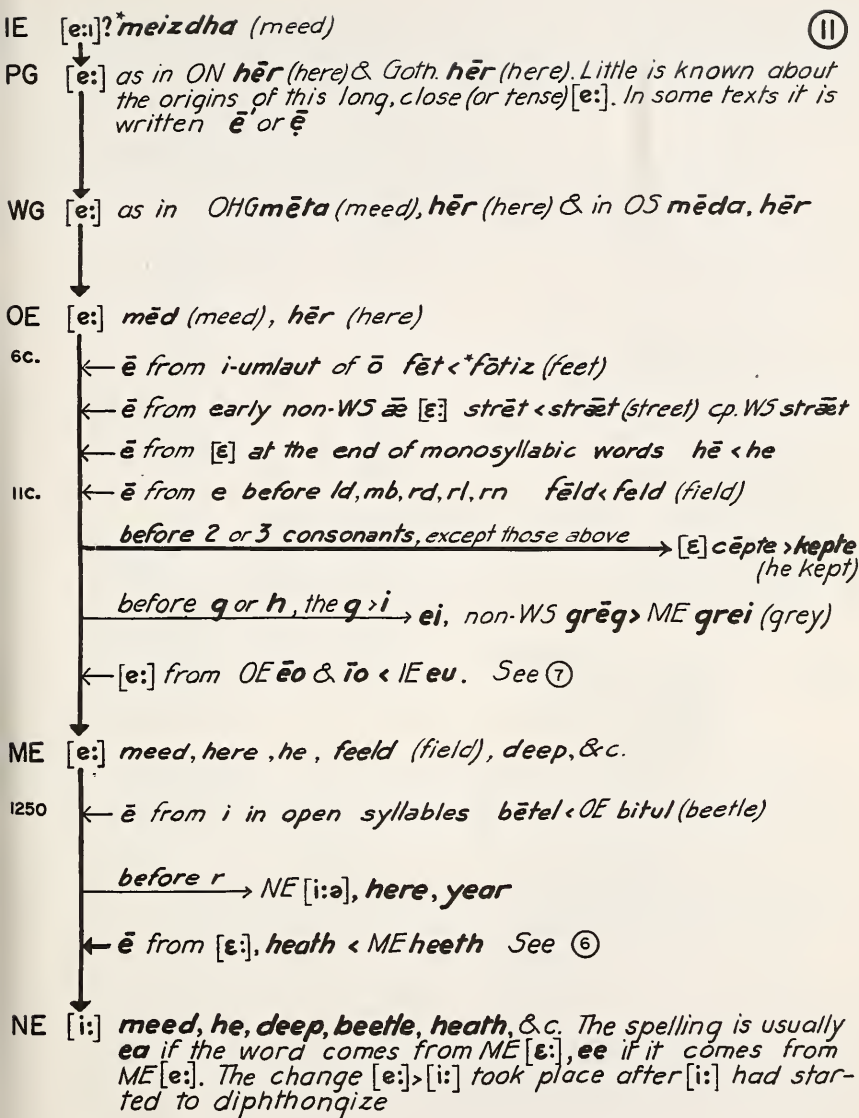 IE [e:ı]? *meizdha (meed) ⑪
PG [e:] as in ON hēr (here) & Goth. hēr (here). Little is known about
the origins of this long, close (or tense) [e:]. In some texts it is
written ḗ or ẹ̄
WG [e:] as in OHG mēta (meed), hēr (here) & in OS mēda, hēr
OE [e:] mēd (meed), hēr (here)
6c. ē from i-umlaut of ō fēt < *fōtiz (feet)
ē from early non-WS ǣ [ɛ:] strēt < strǣt (street) cp. WS strǣt
ē from [ɛ] at the end of monosyllabic words hē < he
11c. ē from e before ld, mb, rd, rl, rn fēld < feld (field)
before 2 or 3 consonants, except those above → [ɛ] cēpte > kepte
(he kept)
before g or h, the g > i → ei, non-WS grēg > ME grei (grey)
[e:] from OE ēo & īo < IE eu. See ⑦
ME [e:] meed, here, he, feeld (field), deep, &c.
1250 ē from i in open syllables bētel < OE bitul (beetle)
before r → NE [i:ə], here, year
ē from [ɛ:], heath < ME heeth See ⑥
NE [i:] meed, he, deep, beetle, heath, &c. The spelling is usually
ea if the word comes from ME [ɛ:], ee if it comes from
ME [e:]. The change [e:] > [i:] took place after [i:] had star-
ted to diphthongize